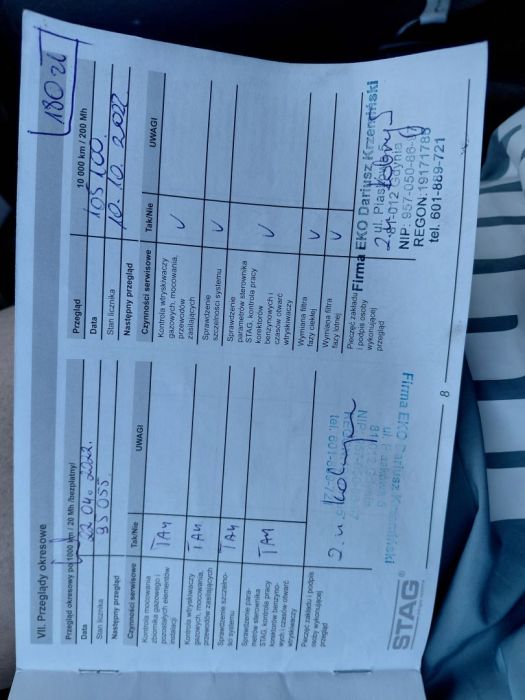 VII. Przeglądy okresowe
Przegląd okresowy po 1000 km / 20 Mh /bezpłatny/
Data
22.04.2022.
Stan licznika
95 055
Następny przegląd
Czynności serwisowe
Tak/Nie
UWAGI
Kontrola mocowania
zbiornika gazowego i
pozostałych elementów
instalacji
TAK
Kontrola wtryskiwaczy
gazowych, mocowania,
przewodów zasilających
TAK
Sprawdzenie szczelno-
ści systemu
TAK
Sprawdzenie para-
metrów sterownika
STAG, kontrola pracy
korektorów benzyno-
wych i czasów otwarć
wtryskiwaczy
TAK
Pieczęć zakładu i podpis
osoby wykonującej
przegląd
Firma EKO Dariusz
STAG®
180 zł
Przegląd
10 000 km / 200 Mh
Data
105 100
Stan licznika
10.10.2022
Następny przegląd
Czynności serwisowe
Tak/Nie
UWAGI
Kontrola wtryskiwaczy
gazowych, mocowania,
przewodów
zasilających
Sprawdzenie
szczelności systemu
Sprawdzenie
parametrów sterownika
STAG, kontrola pracy
korektorów
benzynowych i
czasów otwarć
wtryskiwaczy
Wymiana filtra
fazy ciekłej
Wymiana filtra
fazy lotnej
Pieczęć zakładu
i podpis osoby
wykonującej
przegląd
Firma EKO Dariusz
ul. Piaskowa 5
81-012 Gdynia
NIP: 957-050-86-
REGON:
tel. 601-889-721
8